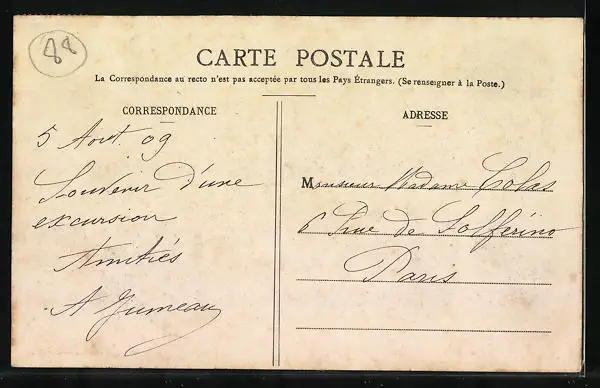 88
CARTE POSTALE
La Correspondance au recto n'est pas acceptée par tous les Pays Étrangers. (Se renseigner à la Poste.)
CORRESPONDANCE
ADRESSE
5 Aout 09
Souvenir d'une
excursion
Amitiés
A Jumeau
Monsieur Madame Colas
6 Rue de Solférino
Paris